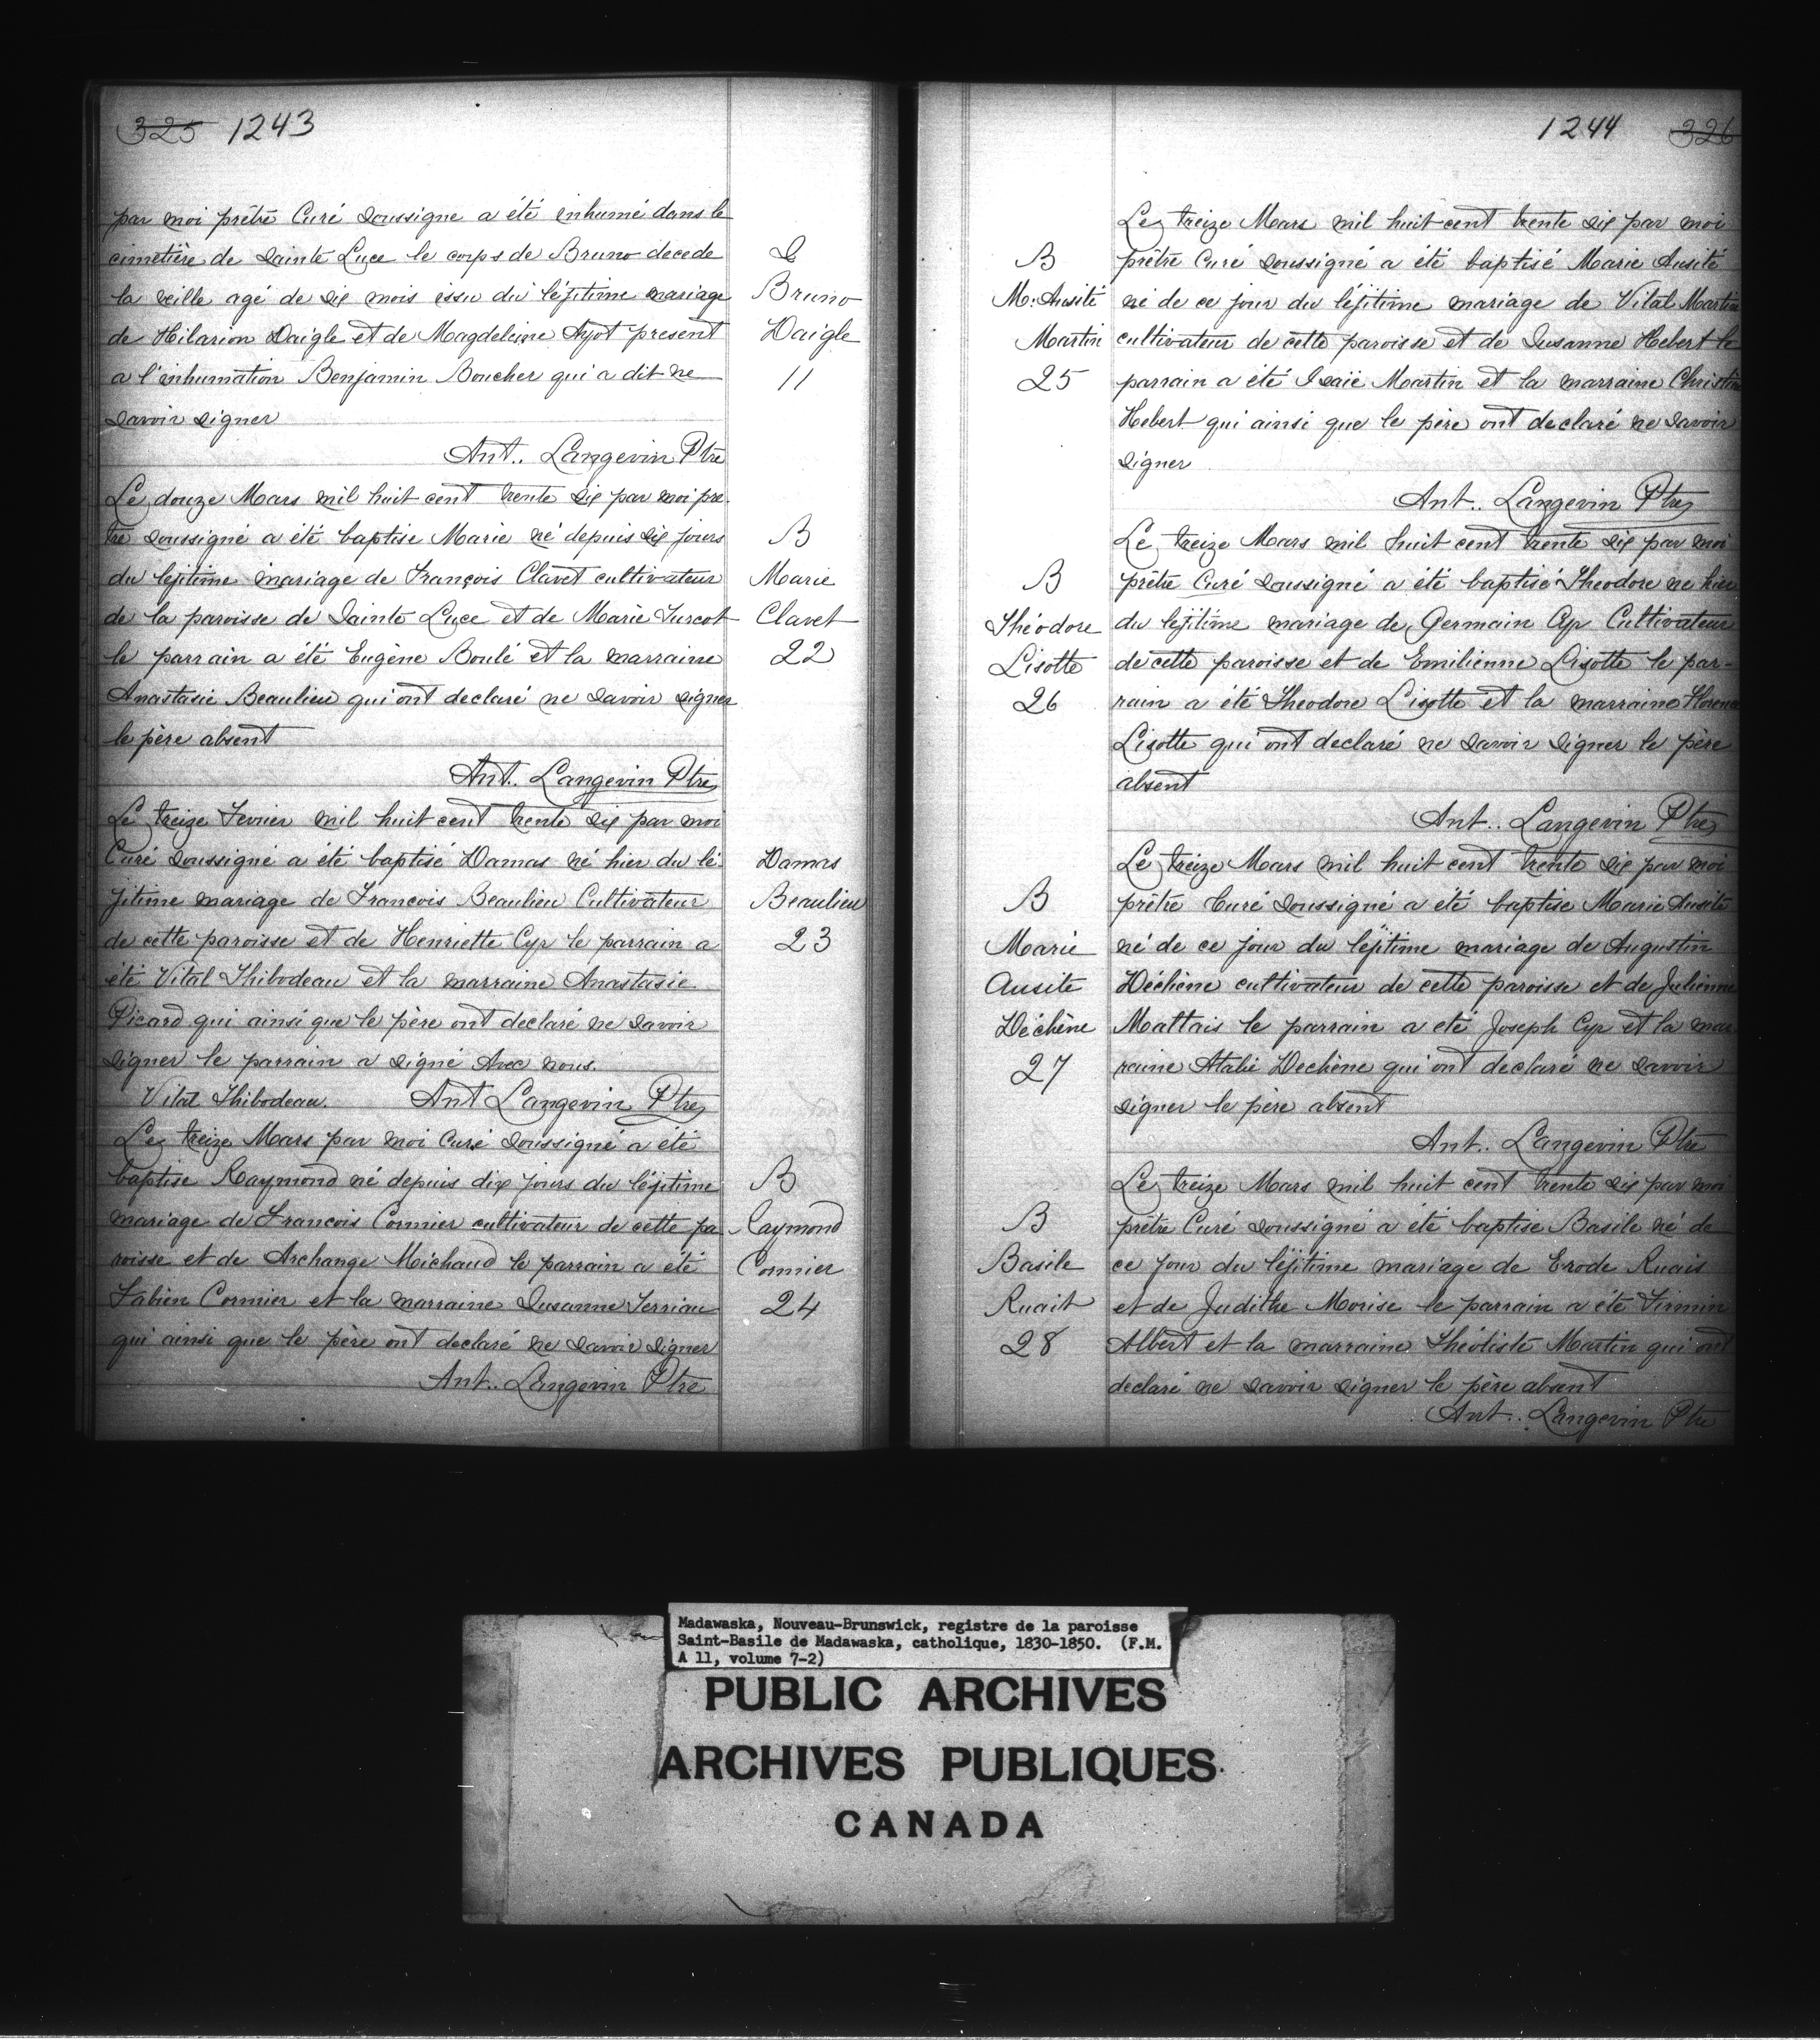 325 1243
par moi prêtre Curé soussigne a été inhumé dans le
cimetière de Sainte Luce le corps de Bruno decede
la veille agé de six mois issu du léjitime mariage
de Hilarion Daigle et de Magdeleine Ayot present
a l'inhumation Benjamin Boucher qui a dit ne
savoir signer
Ant.. Langevin Ptre
S
Bruno
Daigle
11
Le douze Mars mil huit cent trente six par moi pre-
tre soussigné a été baptise Marie né depuis six jours
du lejitime mariage de François Clavet cultivateur
de la paroisse de Sainte Luce et de Marie Turcot
le parrain a été Eugène Boulé et la marraine
Anastasie Beaulieu qui ont declaré ne savoir signer
le père absent
Ant.. Langevin Ptre
B
Marie
Clavet
22
Le treize Fevrier mil huit cent trente six par moi
Curé soussigné a été baptisé Damas né hier du lé-
jitime mariage de Francois Beaulieu Cultivateur
de cette paroisse et de Henriette Cyr le parrain a
été Vital Thibodeau et la marraine Anastasie
Picard qui ainsi que le père ont declaré ne savoir
signer le parrain a signé Avec nous.
Vital Thibodeau. Ant Langevin Ptre
Damas
Beaulieu
23
Le treize Mars par moi Curé soussigné a été
baptise Raymond né depuis dix jours du léjitime
mariage de Francois Cormier cultivateur de cette pa
roisse et de Archange Michaud le parrain a été
Fabien Cormier et la marraine Susanne Terriau
qui ainsi que le père ont declaré ne savoir signer
Ant.. Langevin Ptre
B
Raymond
Cormier
24
1244 326
Le treize Mars mil huit cent trente six par moi
prêtre Curé soussigné a été baptisé Marie Ausité
né de ce jour du léjitime mariage de Vital Martin
cultivateur de cette paroisse et de Susanne Hebert le
parrain a été Isaïe Martin et la marraine Christin
Hebert qui ainsi que le père ont declaré ne savoir
signer
Ant.. Langevin Ptre
B
M: Ausité
Martin
25
Le treize Mars mil huit cent trente six par moi
prêtre Curé soussigné a été baptisé Theodore ne hier
du lejitime mariage de Germain Cyr Cultivateur
de cette paroisse et de Emilienne Lisotte le par-
rain a été Theodore Lisotte et la marraine Florence
Lisotte qui ont declaré ne savoir signer le père
absent
Ant.. Langevin Ptre
B
Théodore
Lisotte
26
Le treize Mars mil huit cent trente six par moi
prêtre Curé soussigné a été baptise Marie Ausité
né de ce jour du léjitime mariage de Augustin
Déchène cultivateur de cette paroisse et de Julienne
Maltais le parrain a eté Joseph Cyr et la mar
raine Atalie Dechène qui ont declaré ne savoir
signer le père absent
Ant.. Langevin Ptre
B
Marie
Ausite
Déchène
27
Le treize Mars mil huit cent trente six par moi
prêtre Curé soussigné a été baptise Basile né de
ce jour du léjitime mariage de Erode Ruais
et de Judithe Morise le parrain a été Firmin
Albert et la marraine Théotiste Martin qui ont
declaré ne savoir signer le père absent
Ant.. Langevin Ptre
B
Basile
Ruait
28
Madawaska, Nouveau-Brunswick, registre de la paroisse
Saint-Basile de Madawaska, catholique, 1830-1850. (F.M.
A 11, volume 7-2)
PUBLIC ARCHIVES
ARCHIVES PUBLIQUES
CANADA